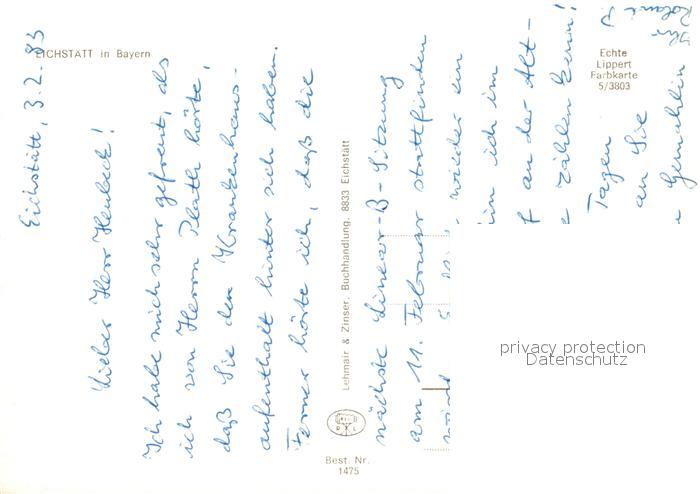 EICHSTÄTT in Bayern
Echte
Lippert
Farbkarte
5/3803
Eichstätt, 3.2.83
Lieber Herr
Ich habe mich sehr gefreut, als
ich von Herrn Plath hörte,
daß Sie den Krankenhaus-
aufenthalt hinter sich haben.
Ferner hörte ich, daß die
nächste Linear-B-Sitzung
am 11. Februar stattfinden
wieder ein
ich im
an der Alt-
zählen kann!
Tagen
an Sie
Gemahlin
Ihr
Roland
Lehmair & Zinser, Buchhandlung, 8833 Eichstätt
Best. Nr.
1475
privacy protection
Datenschutz